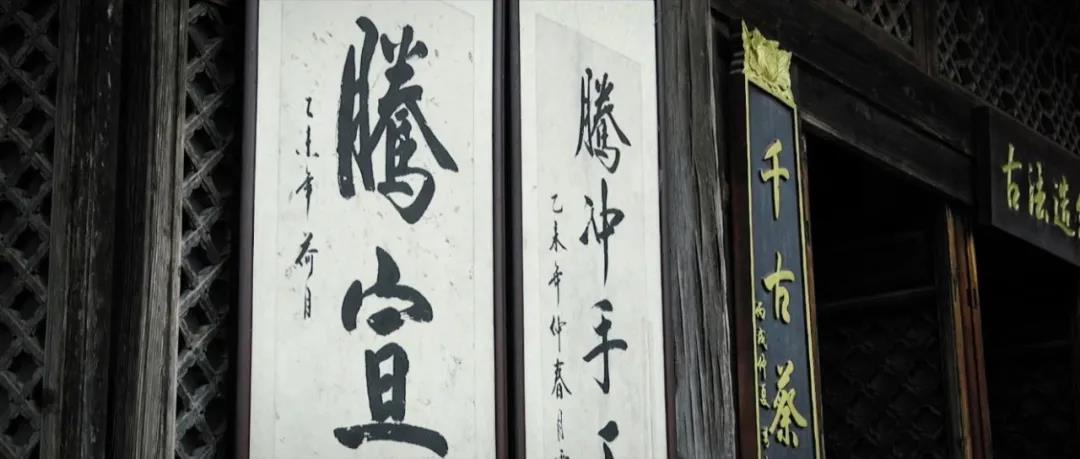 騰宣
乙未年荷月
騰冲手
乙未年仲春月
千古蔡
丙戌仲夏
古法造